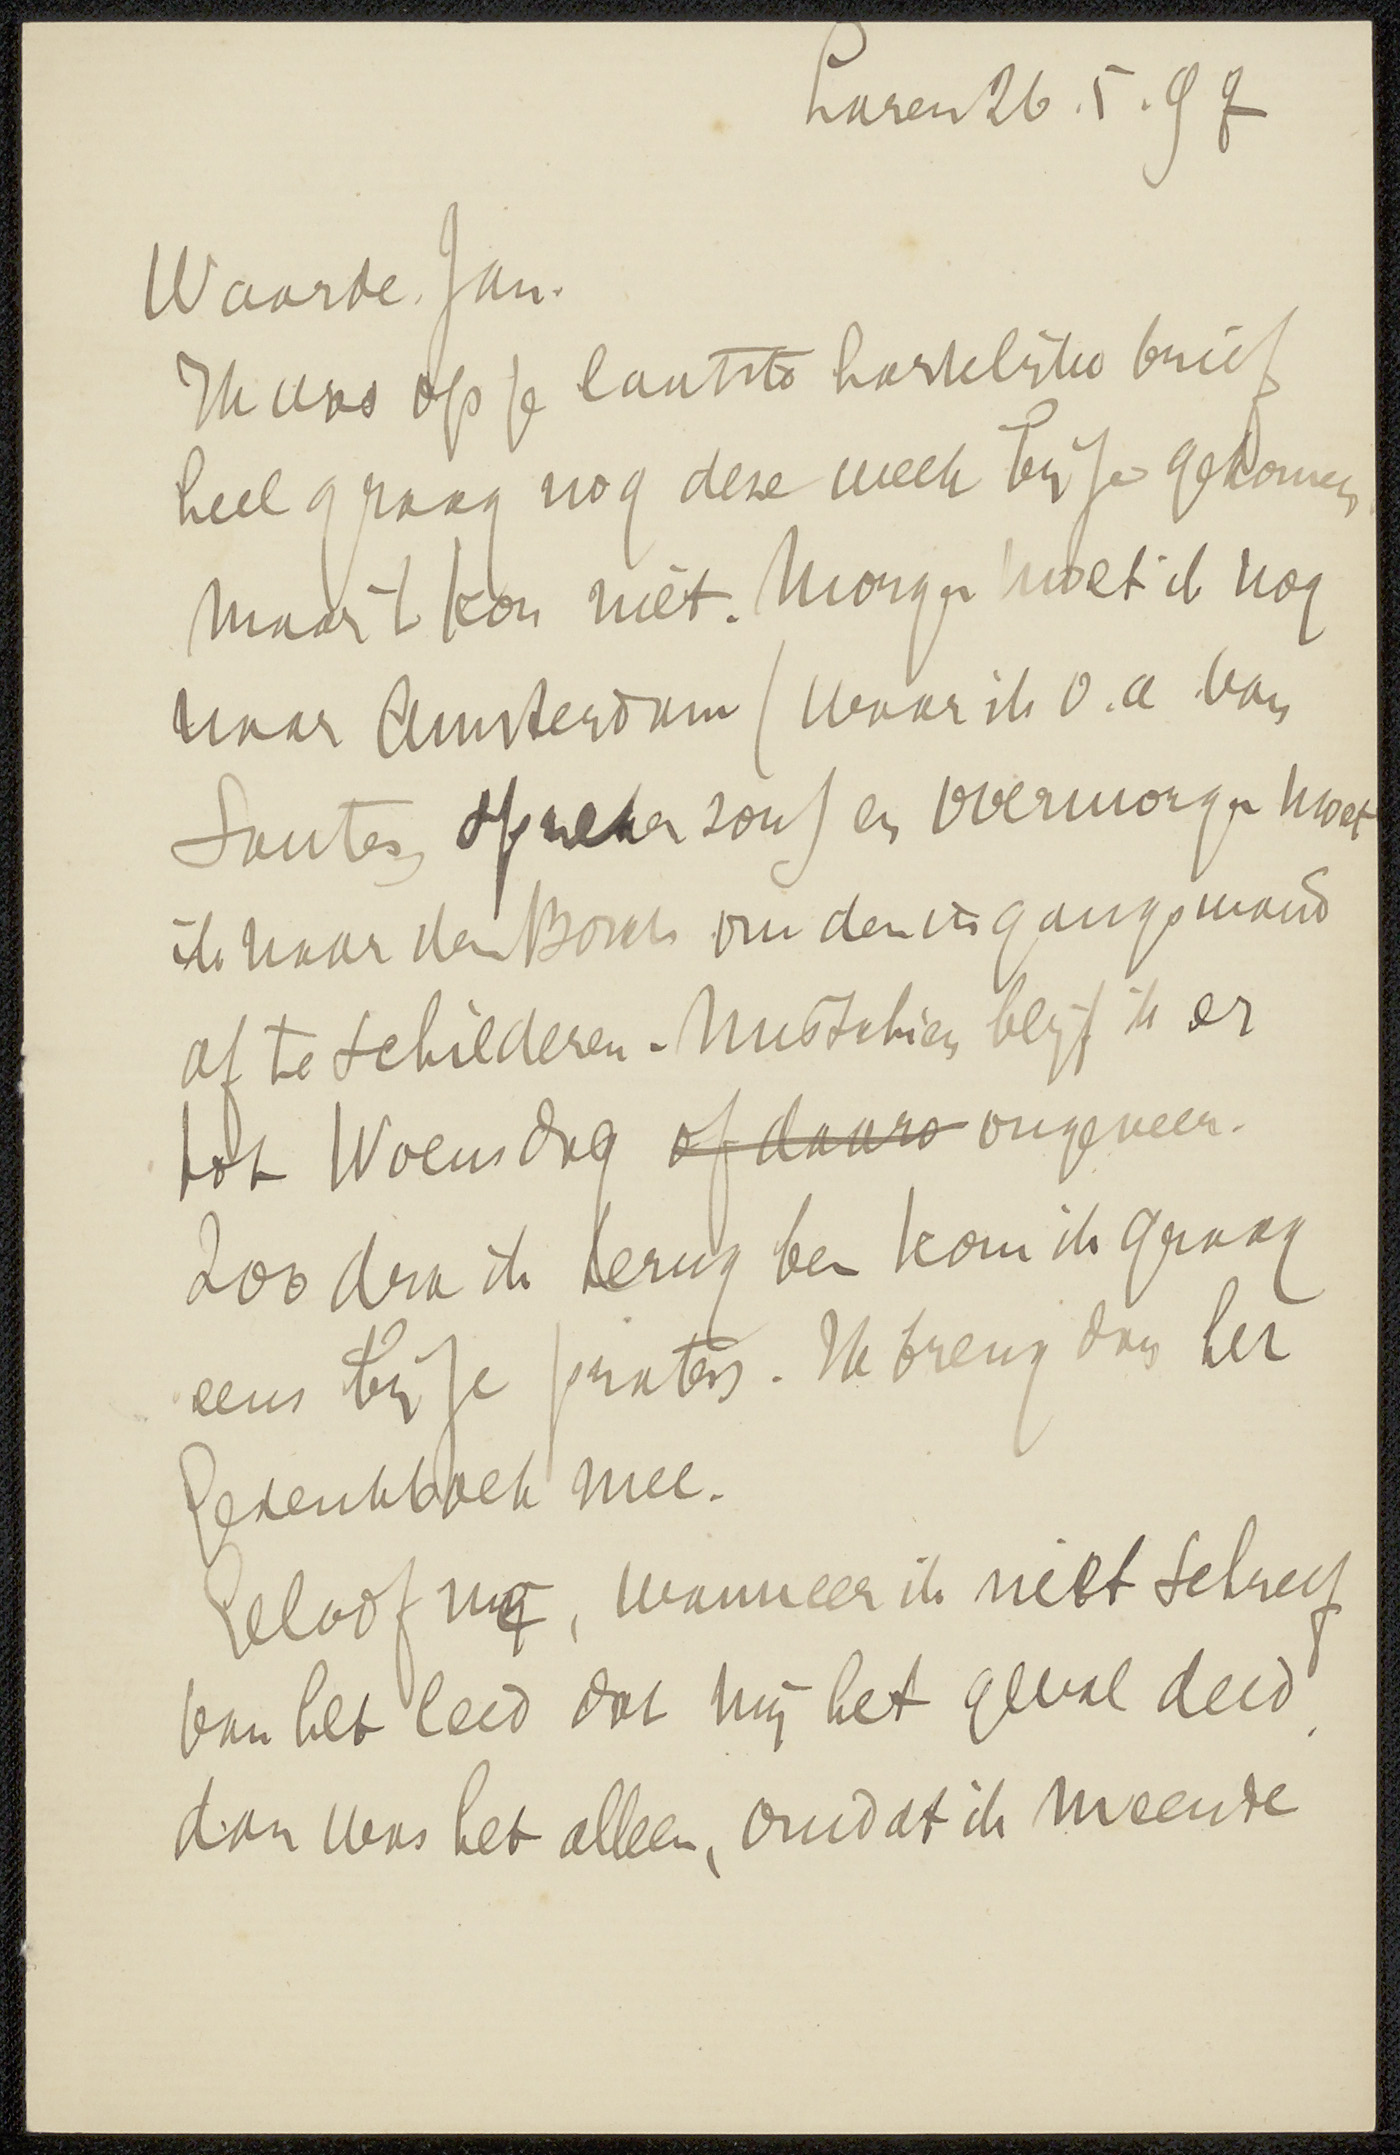 Laren 26.5.97
Waarde Jan.
Ik was op je laatste hartelijke brief
heel graag nog deze week bij je gekomen
maar 't kon niet. Morgen moet ik nog
naar Amsterdam (waar ik o.a. van
Santen spreken zou) en overmorgen moet
ik naar den Bosch om den uitgangswand
af te schilderen. Misschien blijf ik er
tot Woensdag of daaro ongeveer.
Zoodra ik terug ben kom ik graag
eens bij je praten. Ik breng dan het
Gedenkboek mee.
Geloof mij, wanneer ik niet schreef
van het leed dat mij het geval deed,
dan was het alleen, omdat ik meende